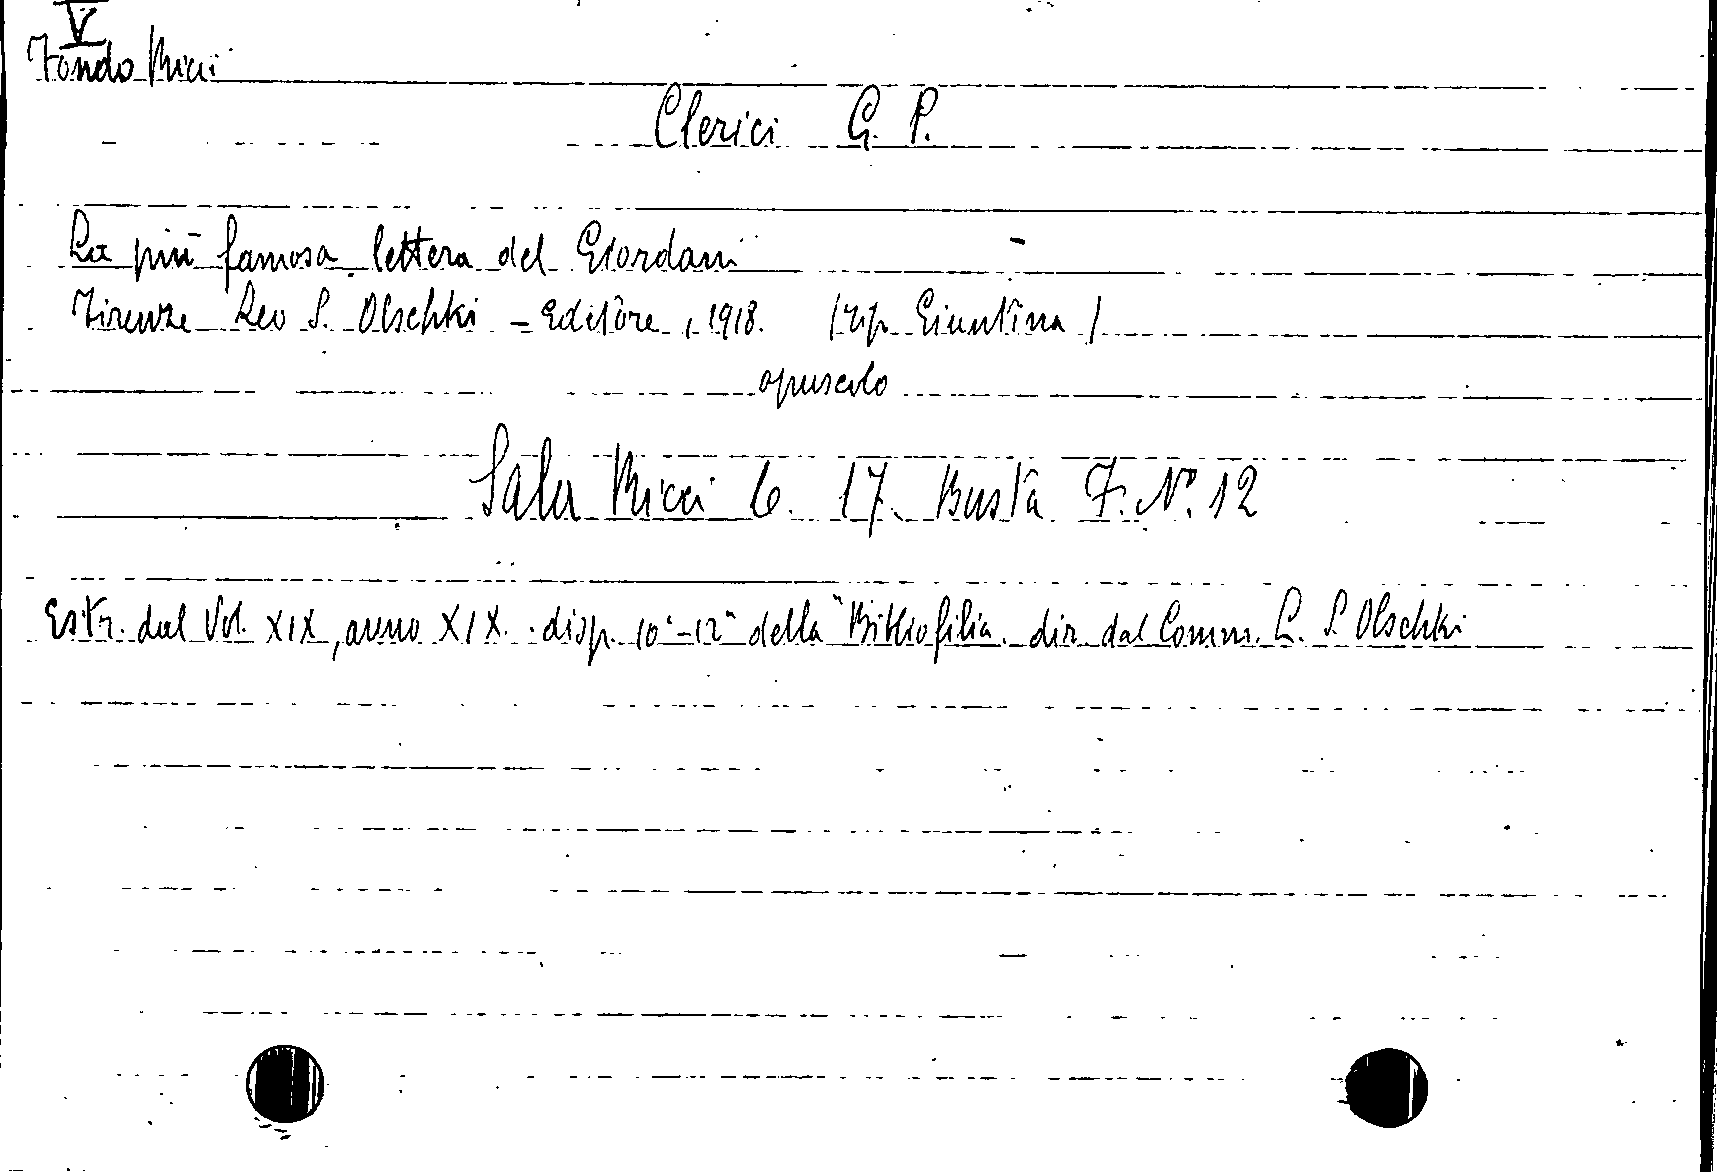 V
Fondo Ricci
Clerici G. P.
La più famosa lettera del Giordani
Firenze Leo S. Olschki - Editore, 1918. (tip. Giuntina)
opuscolo
Sala Ricci 6. 17. Busta F. N° 12
Estr. dal Vol. XIX, anno XIX. disp. 10ª-12ª della "Bibliofilia. dir. dal Comm. L. S. Olschki